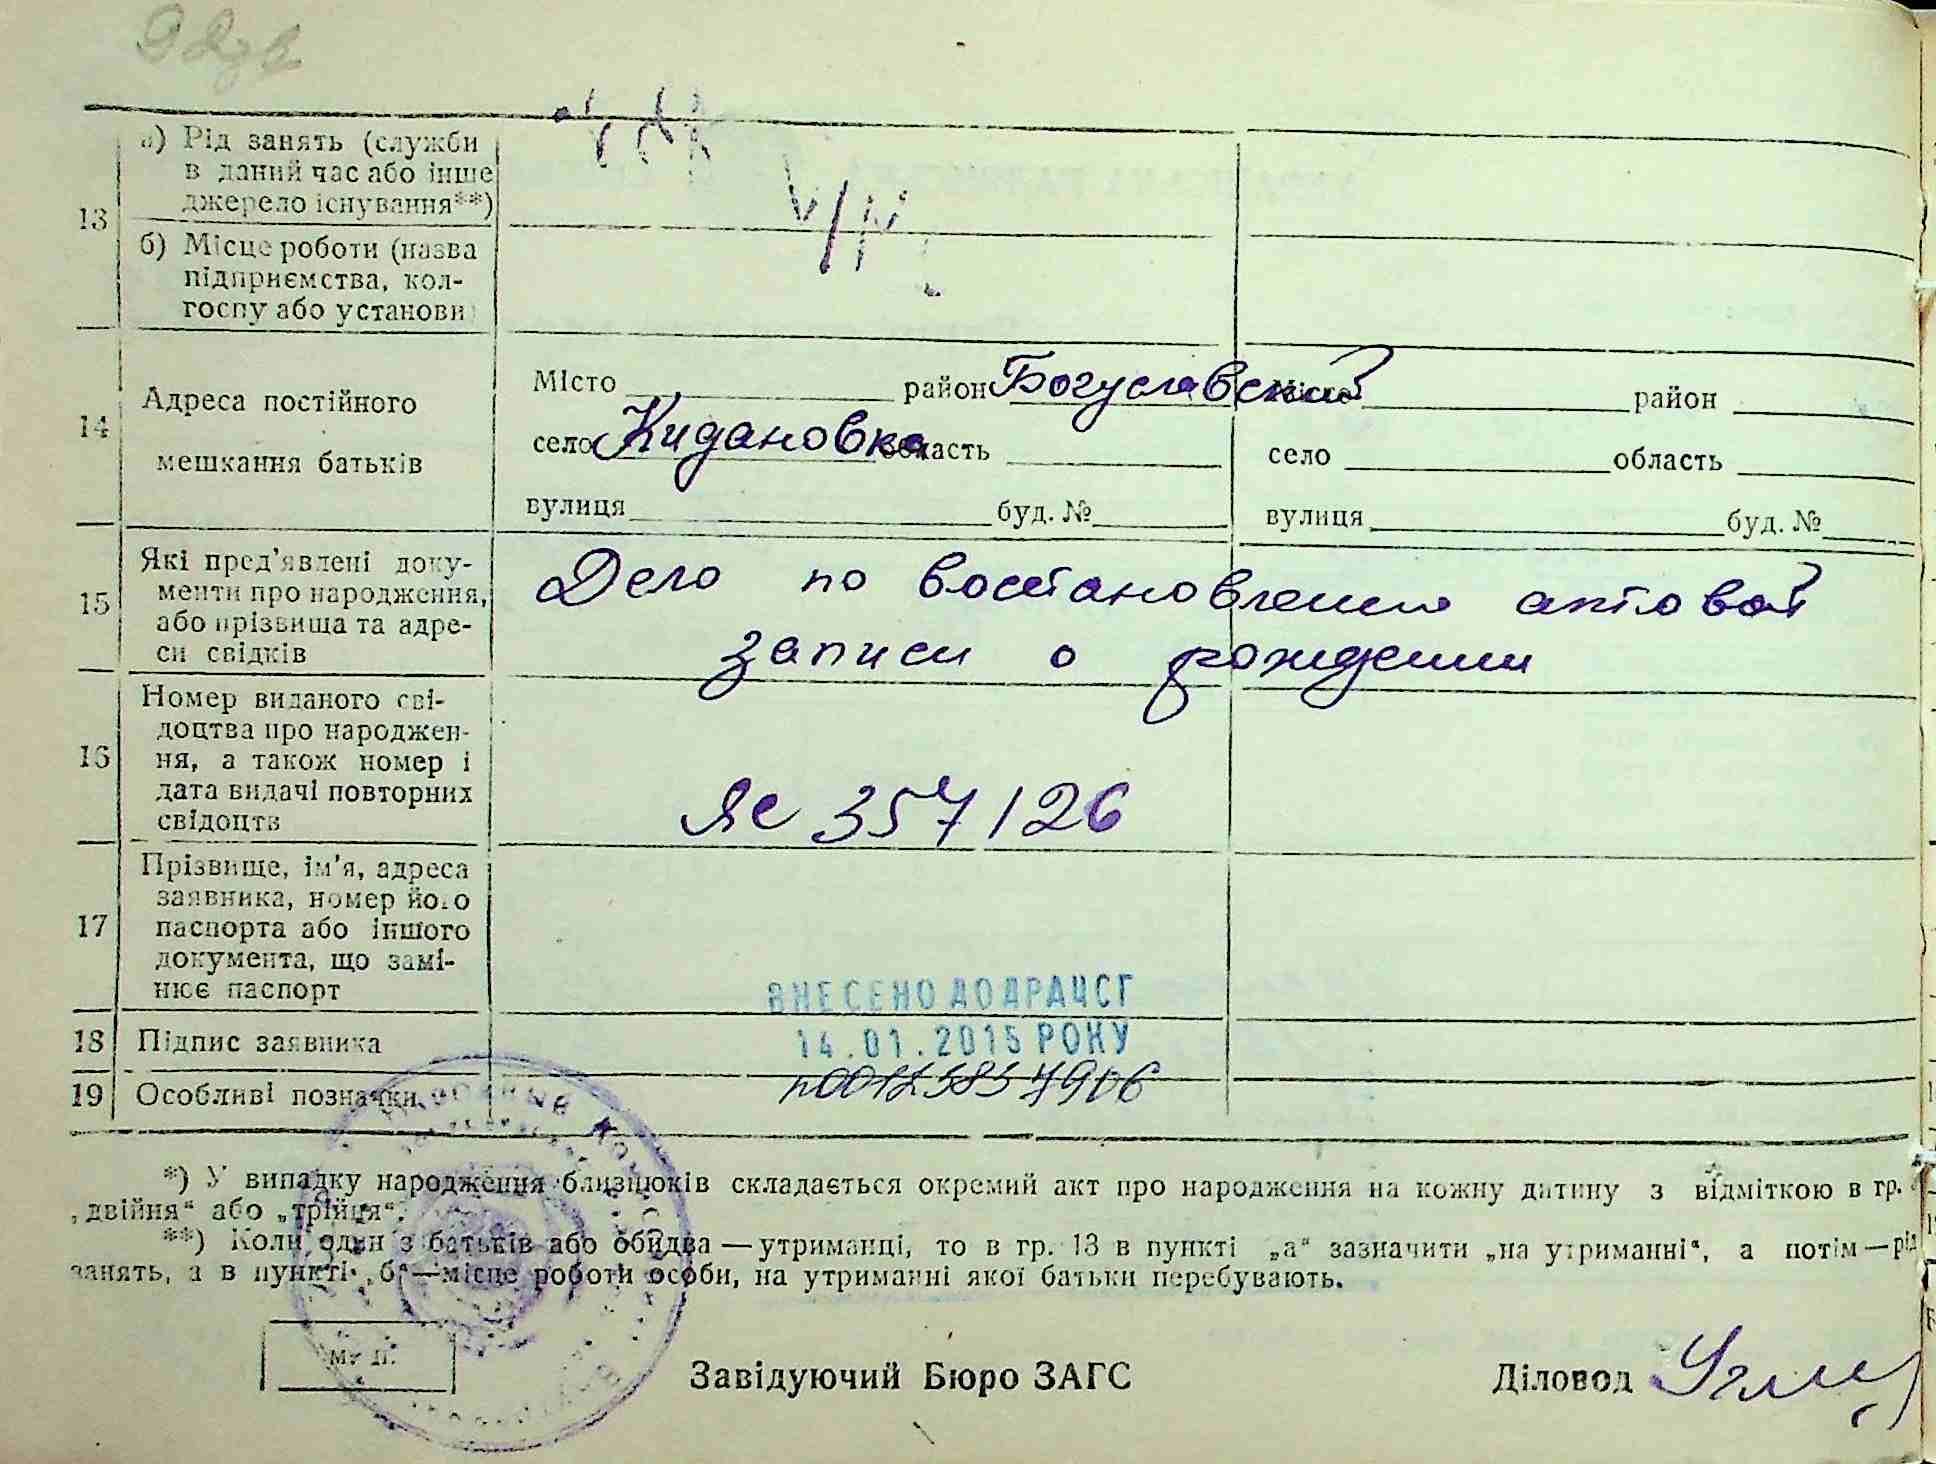 13
а) Рід занять (служби
в даний час або інше
джерело існування**)
б) Місце роботи (назва
підприємства, кол-
госпу або установи
14
Адреса постійного
мешкання батьків
Місто район Богуславский
село Кидановка область
вулиця буд. №
Місто район
село область
вулиця буд. №
15
Які пред'явлені доку-
менти про народження,
або прізвища та адре-
си свідків
Дело по востановлении актовой
записи о рождении
16
Номер виданого сві-
доцтва про народжен-
ня, а також номер і
дата видачі повторних
свідоцтв
ЯС 357126
17
Прізвище, ім'я, адреса
заявника, номер його
паспорта або іншого
документа, що замі-
нює паспорт
ВНЕСЕНО ДО ДРАЦСГ
18 Підпис заявника
14.01.2015 РОКУ
19 Особливі позначки
*) У випадку народження близнюків складається окремий акт про народження на кожну дитину з відміткою в гр.
„двійня“ або „трійця“.
**) Коли один з батьків або обидва — утриманці, то в гр. 13 в пункті „а“ зазначити „на утриманні“, а потім — рід
занять, а в пункті „б“ — місце роботи особи, на утриманні якої батьки перебувають.
М. П.
Завідуючий Бюро ЗАГС
Діловод